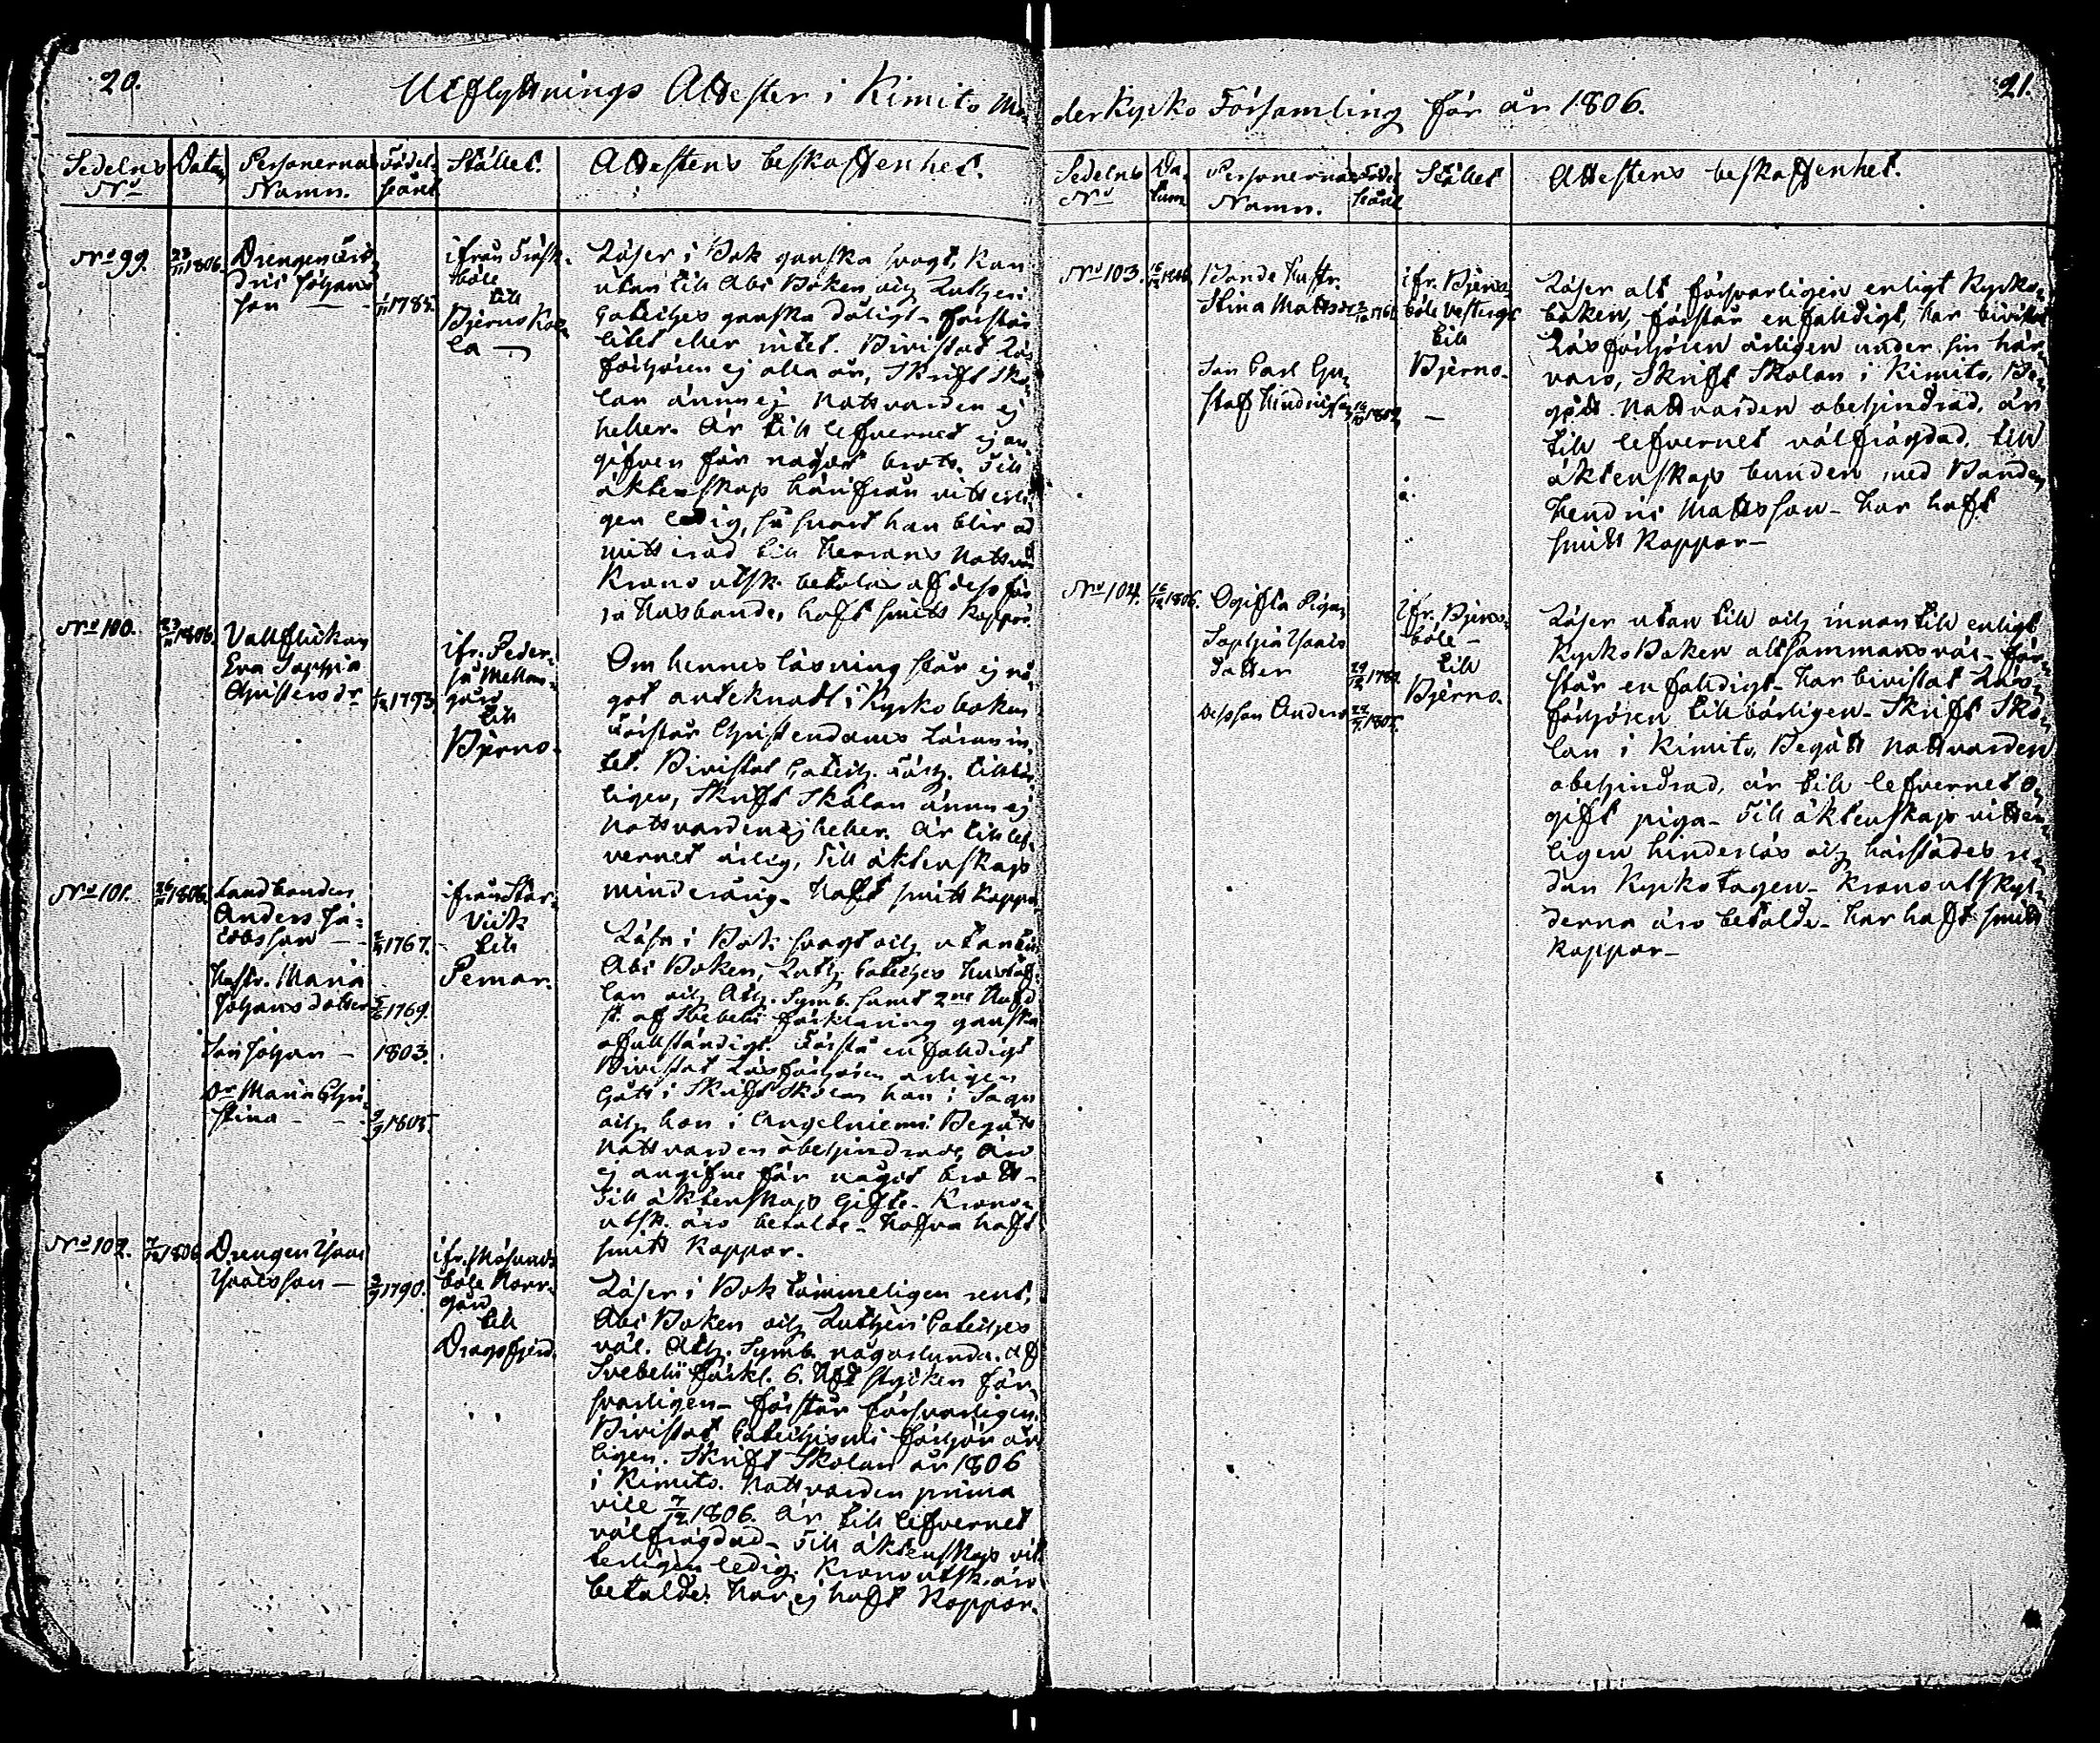 20.
Utflyttnings Attester i Kimito Mo
Sedelns Datum Personernas Födel. Stället. Attestens beskaffenhet.
No Namn. seåret
No 99. 23/11 1806. Drengen
Johans
son — 1/11 1785.
ifrån Träsk.
böle
till
Bjerno Kos
la —
Läser i Bok ganska svagt, kan
utan till Abc Boken och Lutheri
Cateches ganska dåligt. förstår
litet eller intet. Bivistat Läs
förhören ej alla år, Skrift Sko
lan ännu ej Nattvarden ej
heller. Är till lefvernet ej an
gifven för något brott. Till
äktenskap härifrån vitterli
gen ledig, så snart han blir ad
mitterad till Herrans Nattva
Krono utsk. betalas af dess för
ra Husbonde, haft smitt koppor.
No 100. 23/11 1806. Vallflickan
Eva Sophia
Christersdr 1/12 1793.
ifr. Peder
så Mellan
gård
till
Bjerno.
Om hennes läsning står ej nå
got anteknadt i Kyrko boken
Förstår Christendoms Läran in
tet. Bivistat Catech. Förh. tillbör
ligen, Skrift Skolan ännu ej
Nattvarden ej heller. Är till lef
vernet ärlig, Till äktenskap
minderårig. Haft smitt koppor.
No 101. 26/11 1806. Landbonden
Anders Ja-
cobsson — 1767.
Hustr. Maria
Johans dotter 1769.
Son Johan — 1803.
Dr Maria Chri
stina — 9/9 1805.
ifrån Stor
Vik
till
Pemar.
Läsa i Bok svagt och utantill
Abc Boken, Luth. Cateches Hustaf
lan och Ath. Symb. samt 2ne Hufvd
st. af Svebelii förklaring ganska
ofullständigt. Förstå enfaldigt
Bivistat Läsförhören årligen
Gått i Skrift Skolan han i Sagu
och hon i Angelniemi Begått
Nattvarden obehindrade, äro
ej angifne för något brott-
Till äktenskap Gifte. Krono
utsk. äro betalde. Hafva haft
smitt Koppor.
No 102. 7/12 1806. Drengen Isaac
Isaacsson — 3/9 1790.
ifr. Måsunds
böle Norr
gård
till
Dragsfjerd.
Läser i Bok tämmeligen rent,
Abc Boken och Lutheri Cateches
väl. Ath. Symb. någorlunda. af
Svebelii förkl. 6. Hfd stycken för
svarligen. förstår försvarligen.
Bivistat Catechismi förhör år
ligen. Skrift Skolan år 1806
i Kimito. Nattvarden prima
vice 7/12 1806. Är till lefvernet
välfrägdad. Till äktenskap vit
terligen ledig. Krono utsk. äro
betalde. Har ej haft Koppor.
21.
derkyrko Församling för år 1806.
Sedelns Da- Personernas Födel Stället Attestens beskaffenhet.
No tum Namn. seåret
No 103. 16/12 1806. Bonde hustr.
Stina Mattsdr
Son Carl Gu
staf Hindricsson
ifr. Bjens
böle Vestergd
till
Bjerno.
—
Läser alt försvarligen enligt Kyrko
boken, förstår enfaldigt, har bivistat
Läsförhören årligen under sin här
varo, Skrift Skolan i Kimito, Be
gått Nattvarden obehindrad, är
till lefvernet välfrägdad, till
äktenskap bunden med Bonden
Hendric Mattsson. Har haft
smitt Koppor—
No 104. 16/12 1806. Ogifta Pigan
Sophia Isaacs
dotter
dess son Anders
ifr. Bjens
böle —
till
Bjerno.
Läser utan till och innan till enligt
Kyrko Boken altsammans väl. för
står enfaldigt. Har bivistat Läs
förhören tillbörligen. Skrift Sko
lan i Kimito, Begått Nattvarden
obehindrad, är till lefvernet o
gift piga. Till äktenskap vitter
ligen hinderlös och härstädes re
dan Kyrko tagen. Krono utskyl
derna äro betalde. Har haft smitt
Koppor—